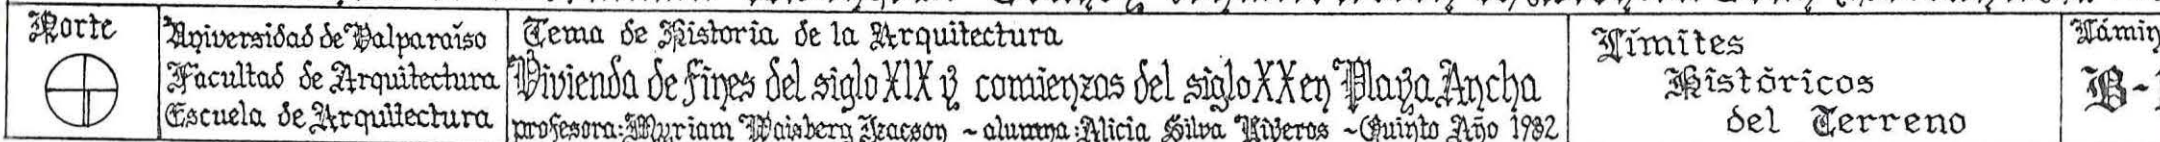 Norte
Universidad de Valparaíso
Facultad de Arquitectura
Escuela de Arquitectura
Tema de Historia de la Arquitectura
Vivienda de fines del siglo XIX y comienzos del siglo XX en Playa Ancha
profesora: Myriam Waisberg Izacson ~ alumna: Alicia Silva Riveros ~ Quinto Año 1982
Límites
Históricos
del Terreno
Lámin
B-1